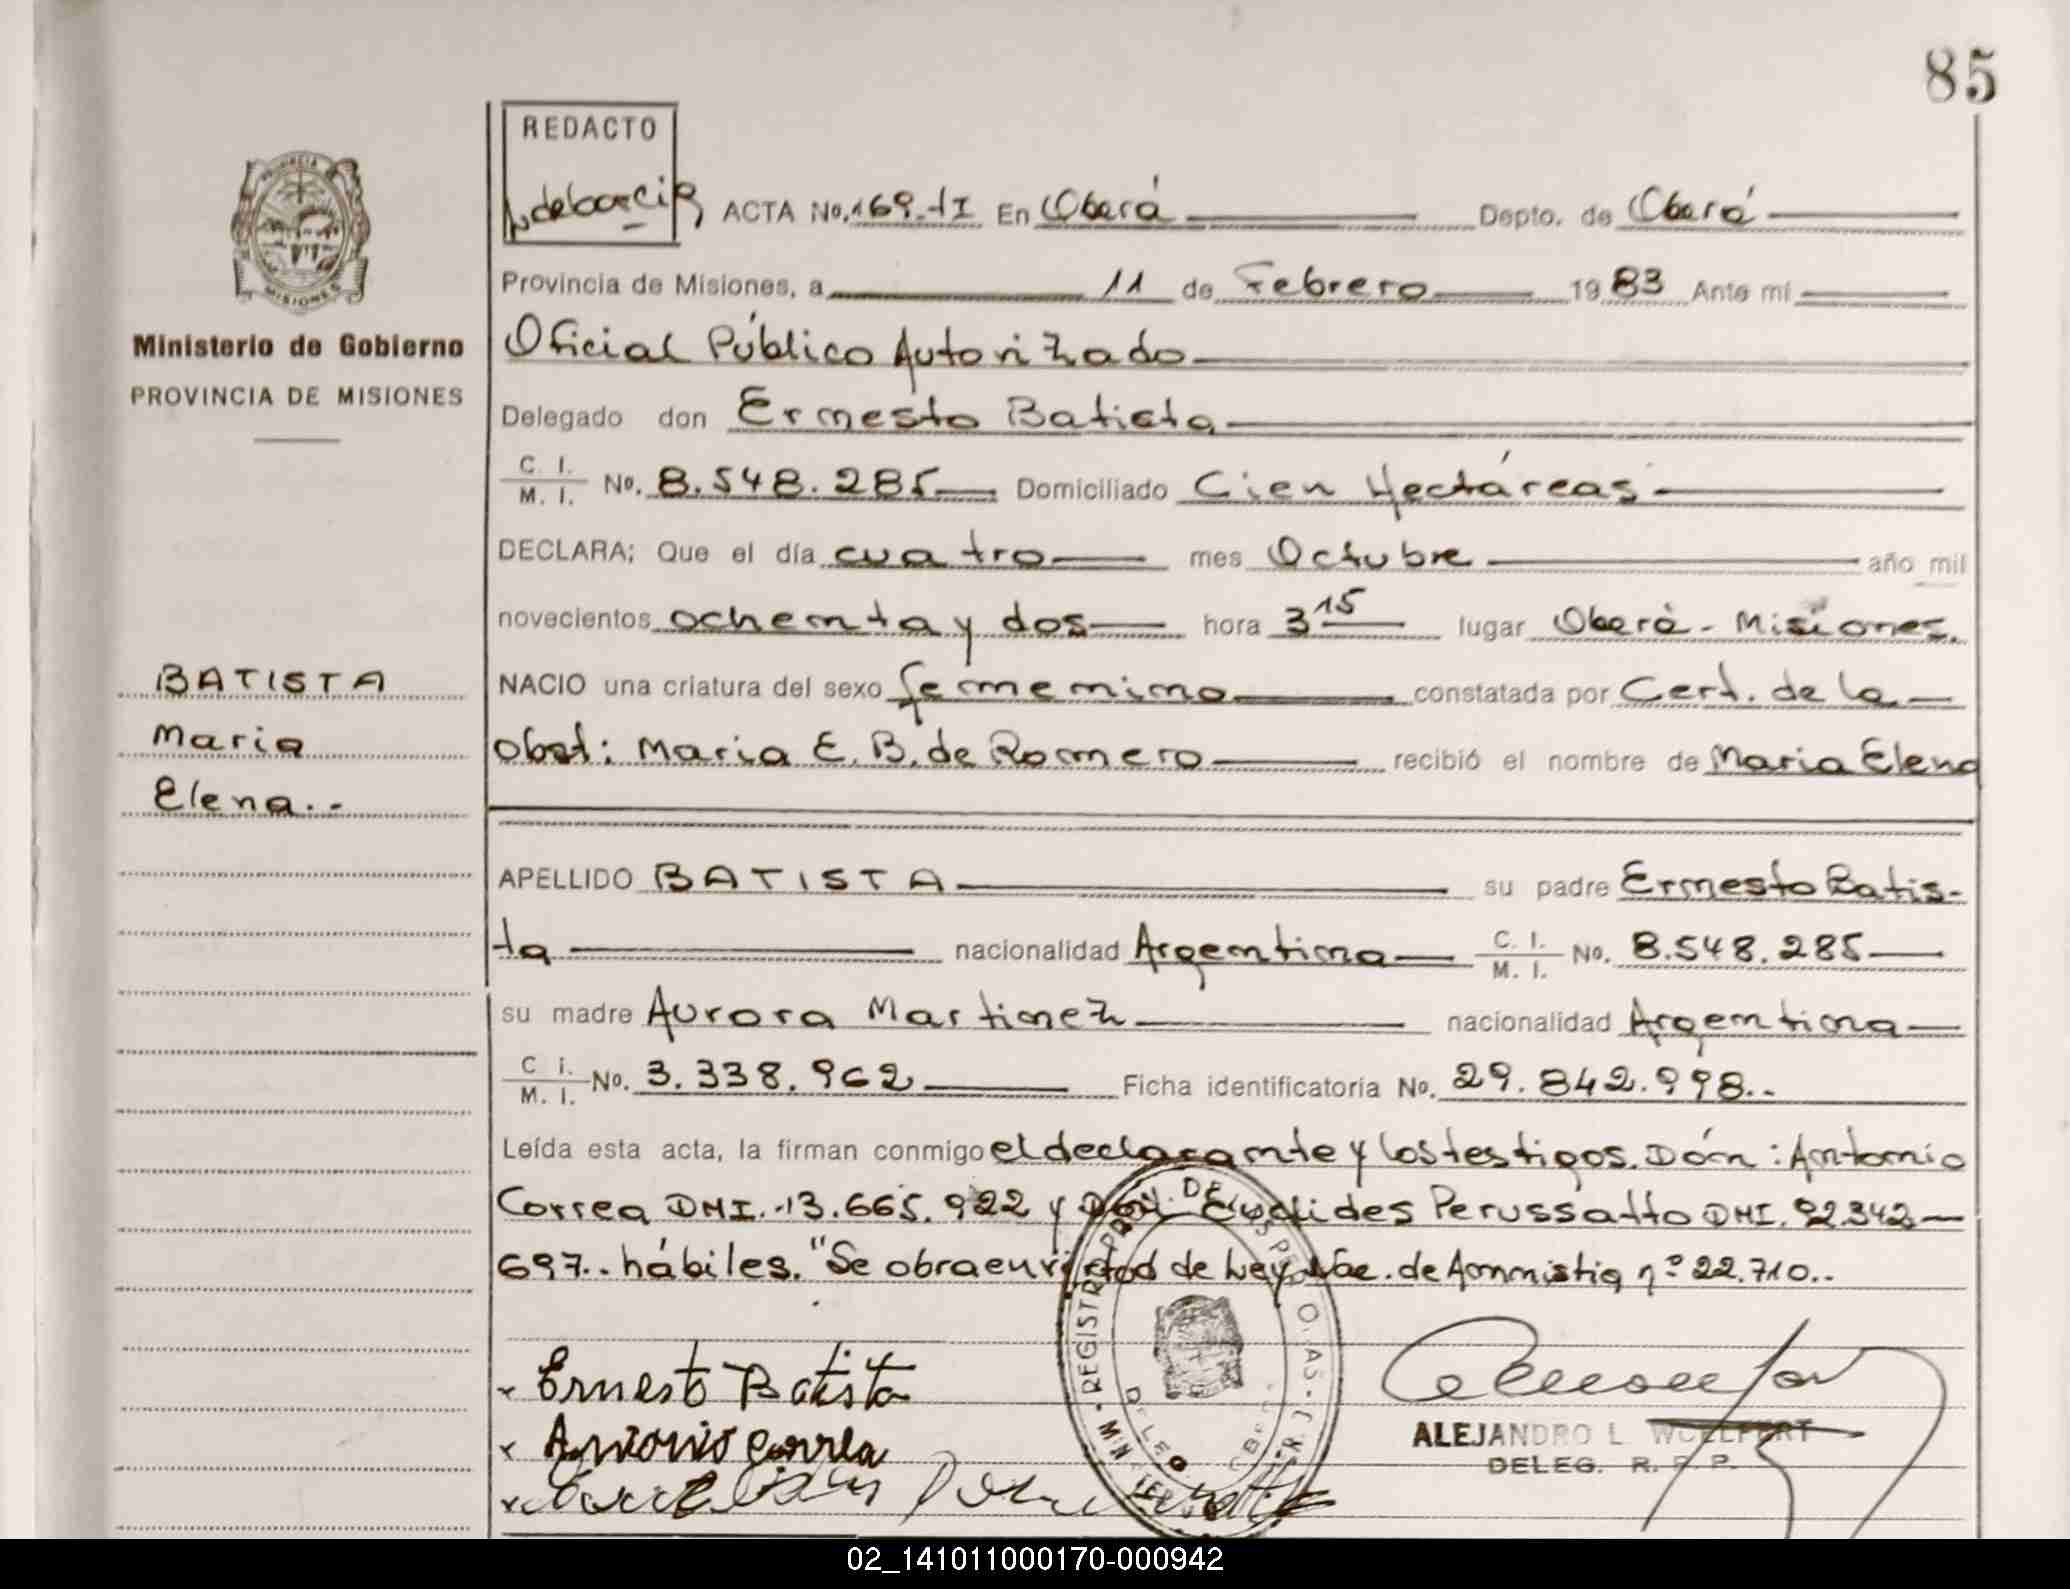 85
REDACTO
ACTA No. 169.-tI En Oberá Depto. de Oberá
PROVINCIA
MISIONES
Provincia de Misiones, a 11 de Febrero 1983 Ante mí
Ministerio de Gobierno
Oficial Público Autorizado
PROVINCIA DE MISIONES
Delegado don Ernesto Batista
C. I. / M. I. No. 8.548.285 Domiciliado Cien Hectáreas
DECLARA; Que el día cuatro mes Octubre año mil
novecientos ochenta y dos hora 3 15 lugar Oberá - Misiones.
BATISTA
NACIO una criatura del sexo femenino constatada por Cert. de la
Maria
obst: Maria E. B. de Romero recibió el nombre de Maria Elena
Elena..-
APELLIDO BATISTA su padre Ernesto Batis-
ta nacionalidad Argentina C. I. / M. I. No. 8.548.285
su madre Aurora Martinez nacionalidad Argentina
C. I. / M. I. No. 3.338.962 Ficha identificatoria No. 29.842.998..
Leída esta acta, la firman conmigo el declarante y los testigos. Dón: Antonio
Correa DNI.-13.665.922 y Don Euclides Perussatto DNI. 92.342
697.. hábiles. "Se obra en virtud de Ley Nac. de Amnistia nº 22.710..
x Ernesto Batista
x Antonio Correa
x
ALEJANDRO L. WOELFERT
DELEG. R. P. P.
02_141011000170-000942